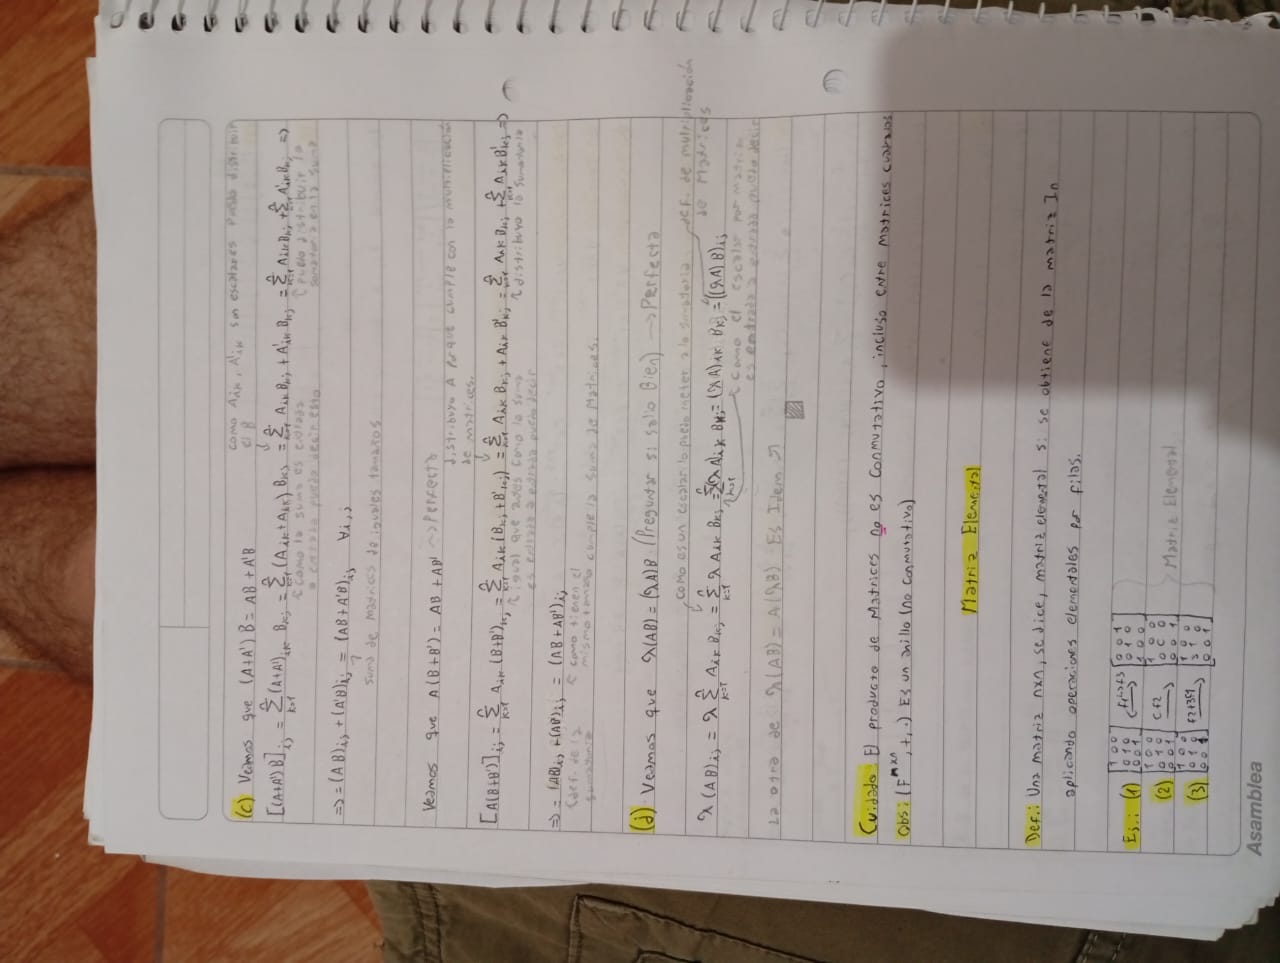 (c) Veamos que (A+A')B = AB + A'B
como Aik, A'ik son escalares puedo distribuir
el B
[(A+A')B]ij = Σ(A+A')ik Bkj = Σ(Aik+Aik)Bkj = Σ Aik Bkj + A'ik Bkj = Σ Aik Bkj + Σ A'ik Bkj =>
como la suma es entrada
a entrada puedo decir esto
puedo distribuir la
sumatoria en la suma
=> = (AB)ij + (A'B)ij = (AB+A'B)ij ∀i,j
suma de matrices de iguales tamaños
Veamos que A(B+B') = AB + AB' -> Perfecto
distribuyo A porque cumple con la multiplicación
de matrices.
[A(B+B')]ij = Σ Aik (B+B')kj = Σ Aik (Bkj+B'kj) = Σ Aik Bkj + Aik B'kj = Σ Aik Bkj + Σ Aik B'kj =>
igual que antes como la suma
es entrada a entrada puedo decir
distribuyo la sumatoria
=> = (AB)ij + (AB')ij = (AB + AB')ij
def. de la
sumatoria
como tienen el
mismo tamaño cumple la suma de Matrices.
(d) Veamos que λ(AB) = (λA)B (Preguntar si salio Bien) -> Perfecta
como es un escalar lo puedo meter a la sumatoria
def. de multiplicación
de Matrices
λ(AB)ij = λ Σ Aik Bkj = Σ λ Aik Bkj = Σ(λA)ik Bkj = (λA)ik Bkj = ((λA)B)ij
como el escalar por matriz
es entrada a entrada puedo decir
La otra de λ(AB) = A(λB) Es Idem
Cuidado El producto de Matrices no es Conmutativo, incluso entre matrices cuadradas
Obs: (F^nxn, +, .) Es un anillo (no conmutativo)
Matriz Elemental
Def.: Una matriz nxn, se dice, matriz elemental si se obtiene de la matriz In
aplicando operaciones elementales por filas.
Ej.: (1) [1 0 0
0 1 0
0 0 1] [0 0 1
0 1 0
1 0 0]
(2) [1 0 0
0 1 0
0 0 1] cf2 -> [1 0 0
0 c 0
0 0 1] Matriz Elemental
(3) [1 0 0
0 1 0
0 0 1] f2+3f1 -> [1 0 0
3 1 0
0 0 1]
Asamblea